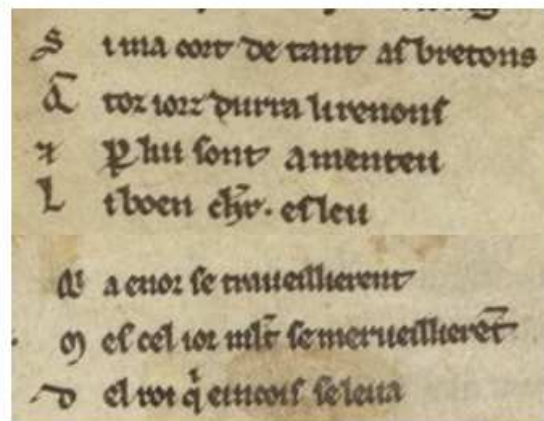 S i ma cort de tant as bretons
Q̄ toz iorz durra li renons
⁊ ꝑ lui sont amenteu
L i boen chr̄. esleu
Qͥ a enor se traueillierent
M es cel ior ml̄t se merueillierēt
D el roi qͥ eincois se leua